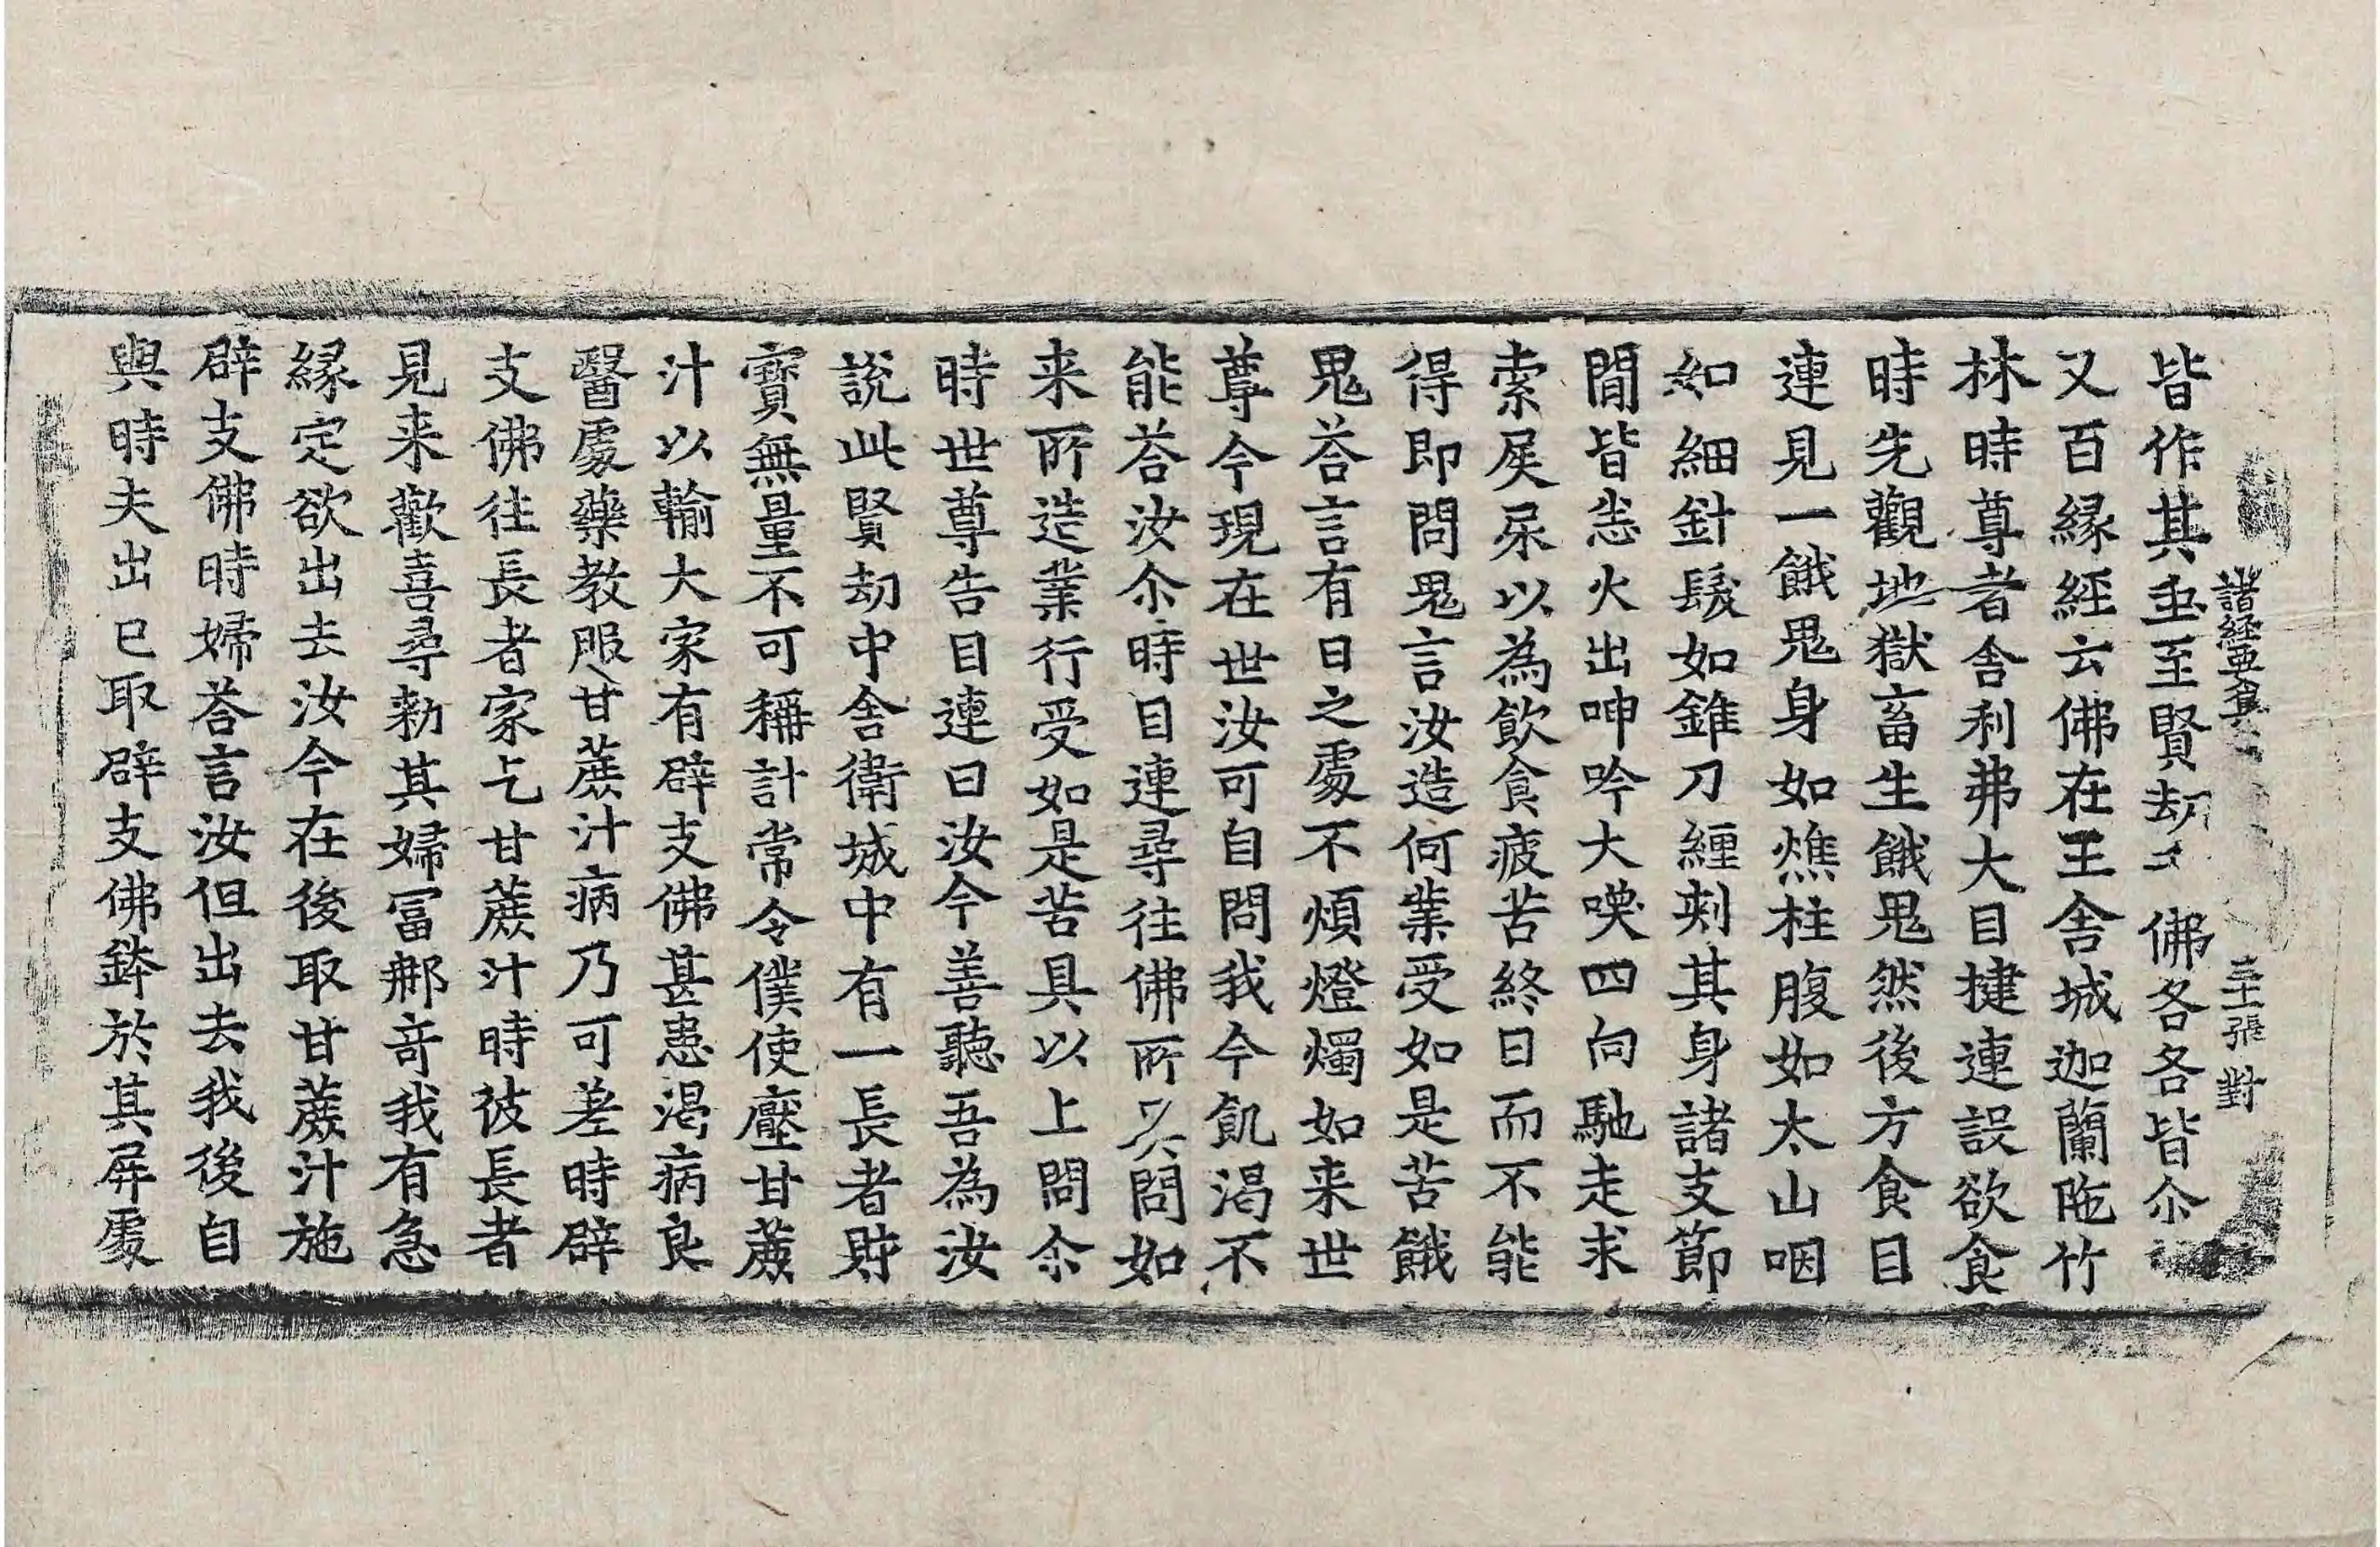 諸經要集
張 對
皆作其𡊮至賢劫 佛各各皆尒
又百縁經云佛在王舎城迦蘭陁竹
林時尊者舎利弗大目揵連設欲食
時先觀地獄畜生餓鬼然後方食目
連見一餓鬼身如燋柱腹如太山咽
如細針髮如錐刀纏刾其身諸支節
間皆悉火出呻吟大喚四向馳走求
索屎尿以為飲食疲苦終日而不能
得即問鬼言汝造何業受如是苦餓
鬼荅言有日之處不煩燈燭如来世
尊今現在世汝可自問我今飢渴不
能荅汝尒時目連尋往佛所 問如
来所造業行受如是苦具以上問尒
時世尊告目連曰汝今善聽吾為汝
說此賢劫中舎衛城中有一長者財
寶無量不可稱計常令僕使壓甘蔗
汁以輸大家有辟支佛甚患渴病良
醫處藥教服甘蔗汁病乃可差時辟
支佛往長者家乞甘蔗汁時彼長者
見来歡喜尋勑其婦冨郍竒我有急
縁定欲出去汝今在後取甘蔗汁施
辟支佛時婦荅言汝但出去我後自
與時夫出已取辟支佛鉢於其屏處